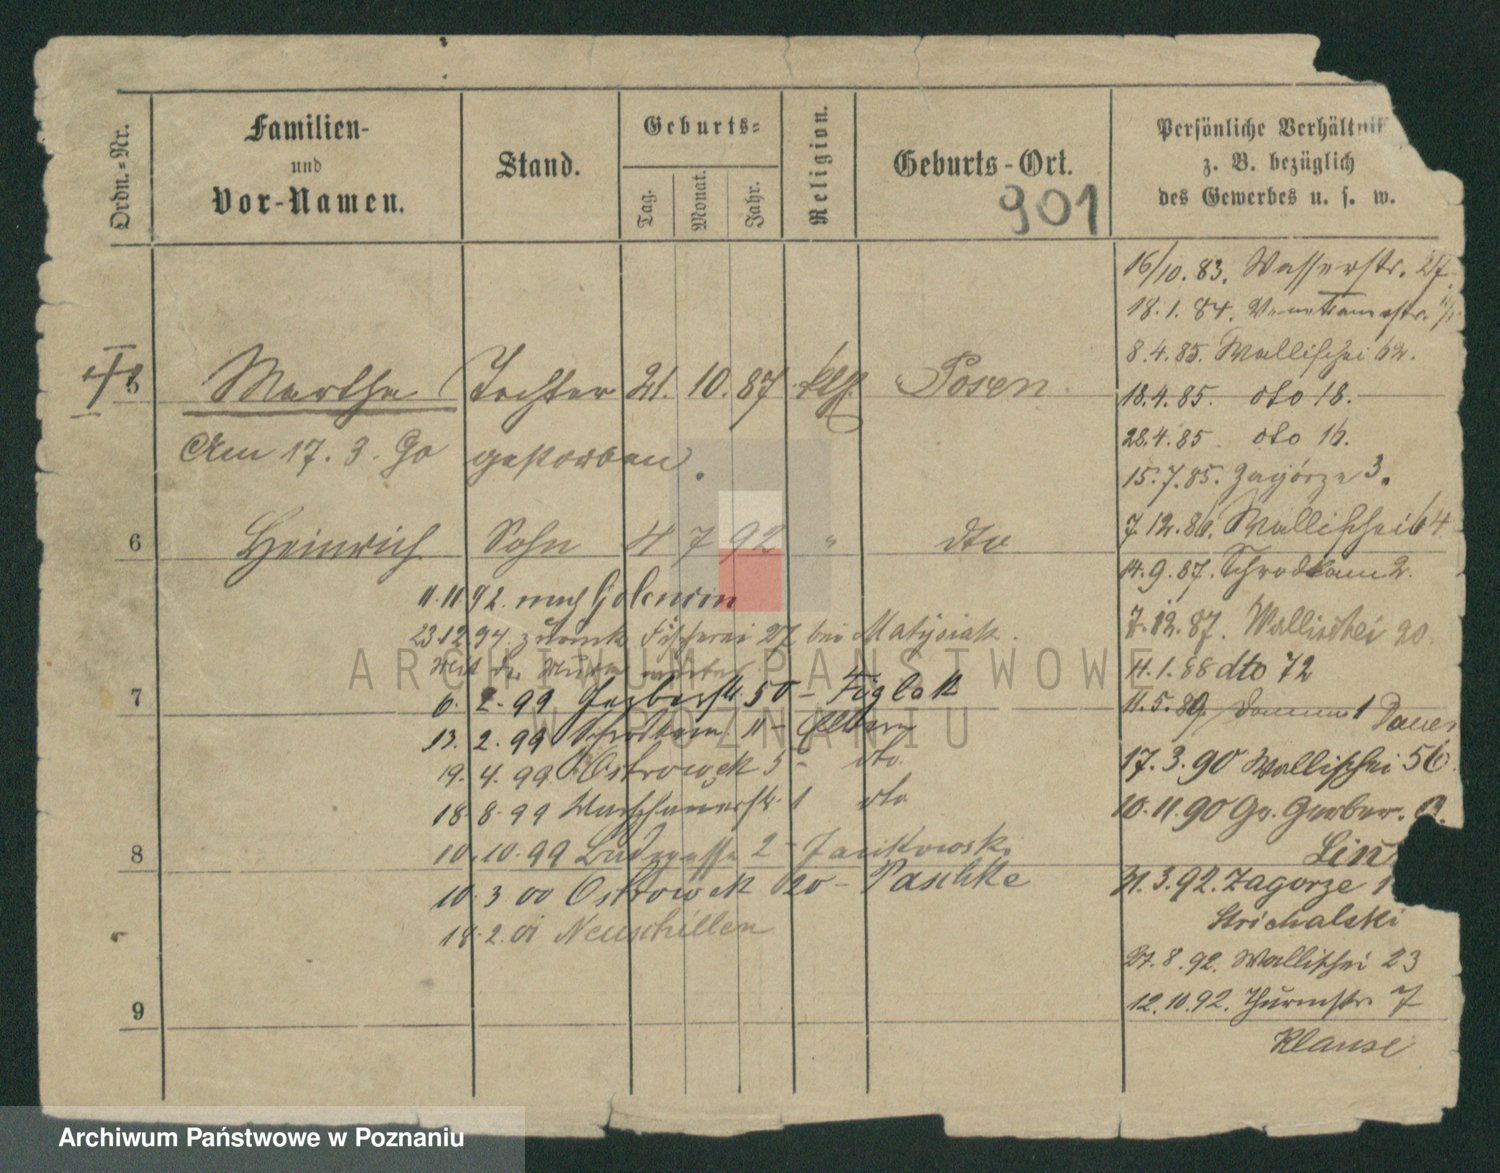 Ordn.-Nr.
Familien-
und
Vor-Namen.
Stand.
Geburts-
Tag.
Monat.
Jahr.
Religion.
Geburts-Ort.
901
Persönliche Verhältniß
z. B. bezüglich
des Gewerbes u. s. w.
16/10. 83. Wasserstr. 27.
18. 1. 84. Venetianerstr.
8. 4. 85. Wallischei 62.
5 Marthe Tochter 21. 10. 87 kth. Posen
18. 4. 85. dto 18.
28. 4. 85. dto 16.
Am 17. 3. 90 gestorben.
15. 7. 85. Zagórze 3.
7. 12. 86. Wallischei 64
6 Heinrich Sohn 4 7 92 " dto
14. 9. 87. Schrodkam 2.
11. 11 92. nach Golencin
7. 12. 87. Wallischei 20.
23 12. 94. zurück Fischerei 27 bei Matysiak.
11. 1. 88 dto 72
7
6. 2. 99 Gerberstr. 50 - Figlak
11. 5. 89 Damm 1 Dauer
13. 2. 99 Schrodkam 11 - Eltern
17. 3. 90 Wallischei 56.
19. 4. 99 Ostrowek 5 - dto.
18. 8. 99 Warschauerstr. 1 dto
10. 11. 90 Gr. Gerber.
8
10. 10. 99 Badegasse 2 - Janikowski
Lin
10. 3 00 Ostrowek 20 - Paschke
21. 3. 92. Zagorze 1
Strichalski
18. 2. 01 Neuschillen
27. 8. 92. Wallischei 23
12. 10. 92. Thurmstr. 7
9
Klause
ARCHIWUM PAŃSTWOWE
W POZNANIU
Archiwum Państwowe w Poznaniu